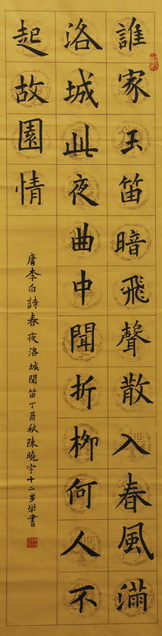 誰家玉笛暗飛聲散入春風滿
洛城此夜曲中聞折柳何人不
起故園情
唐李白詩春夜洛城聞笛丁酉秋陳曉宇十二岁學書